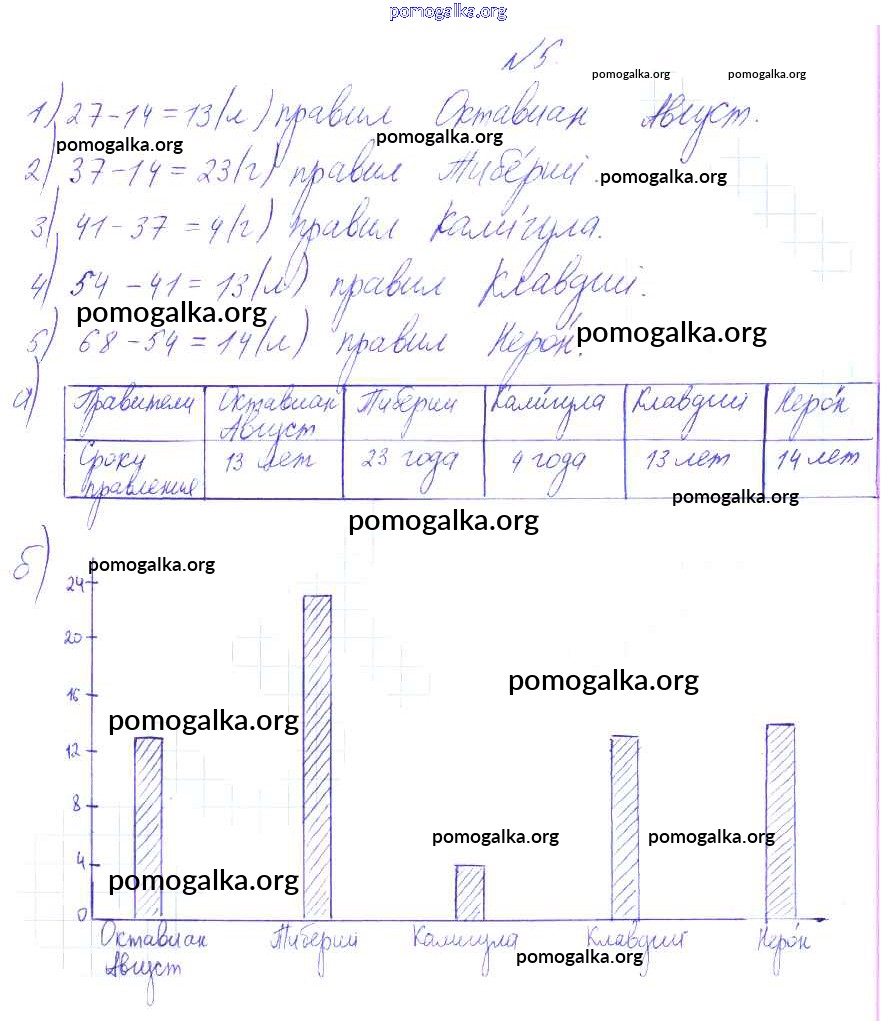 pomogalka.org
№5.
pomogalka.org pomogalka.org
1) 27-14=13(л) правил Октавиан Август.
pomogalka.org pomogalka.org
2) 37-14=23(г) правил Тибе́рий.
pomogalka.org
3) 41-37=4(г) правил Кали́гула.
4) 54-41=13(л) правил Клавдий.
pomogalka.org
5) 68-54=14(л) правил Неро́н.
pomogalka.org
а)
Правители Октавиан Август Тиберий Кали́гула Клавдий Неро́н
Сроку правления 13 лет 23 года 4 года 13 лет 14 лет
pomogalka.org
pomogalka.org
б)
pomogalka.org
24
20
16
pomogalka.org
pomogalka.org
12
8
pomogalka.org pomogalka.org
4
pomogalka.org
0
Октавиан Август Тиберий Калигула Клавдий Неро́н
pomogalka.org